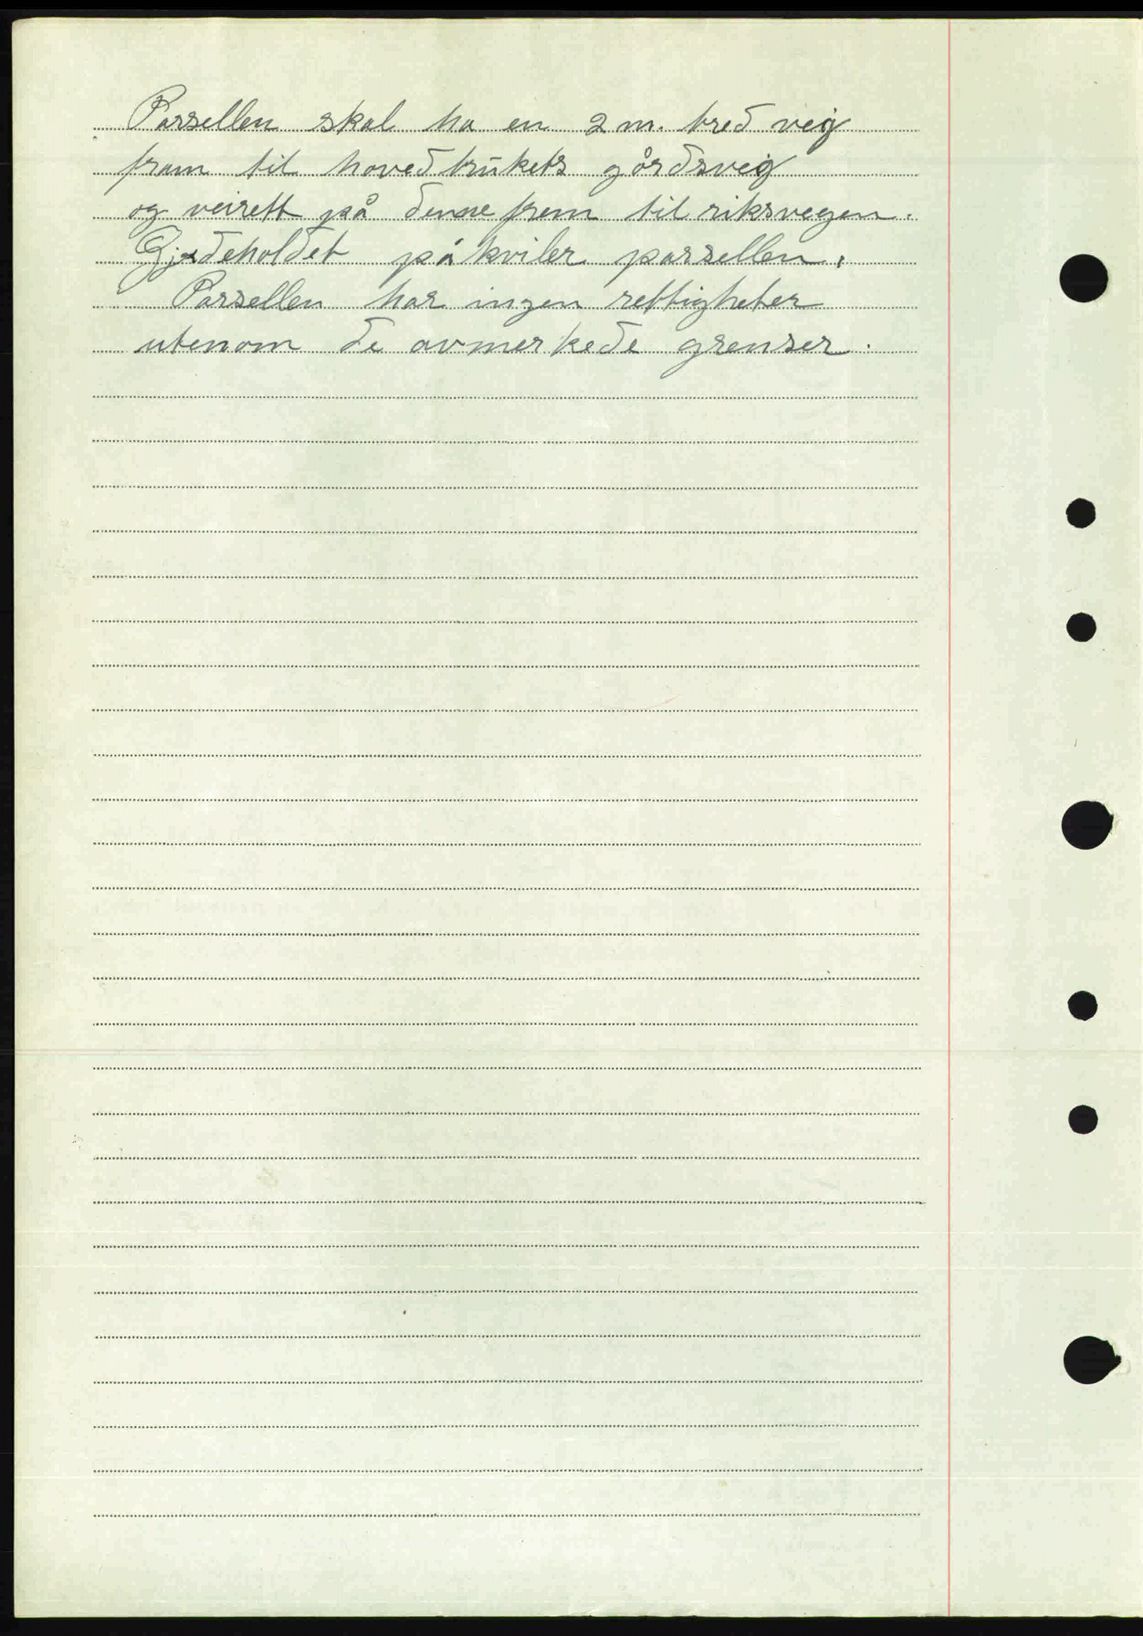 Parsellen skal ha en 2 m. bred veig
fram til hovedbrukets gårdsveig
og veirett på denne frem til riksvegen.
Gjedeholdet påkviler parsellen.
Parsellen har ingen rettigheter
utenom de avmerkede grenser.